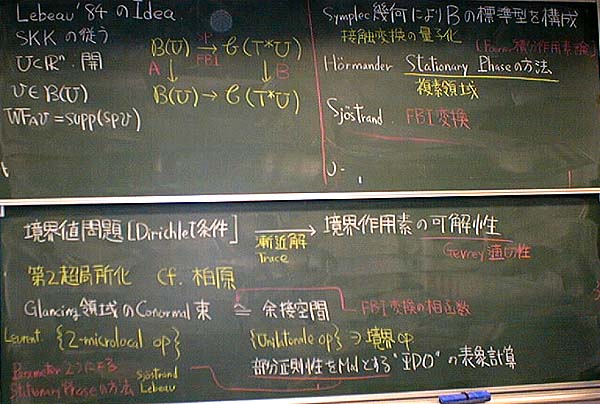 Lebeau '84 の Idea.
SKK の従う
U⊂ℝⁿ. 開
u∈B(U)
WF_A u = supp(sp u)
B(U) SP→ FBI C(T*U)
A↓ ↓B
B(U) → C(T*U)
Symplec 幾何により B の標準型を構成
接触変換の量子化
(Fourier 積分作用素論)
Hörmander Stationary Phase の方法
複素領域
Sjöstrand. FBI 変換
境界値問題 [Dirichlet条件] → 境界作用素の可解性
漸近解
Trace
Gevrey 適切性
第2超局所化 Cf. 柏原
Glancing 領域の Conormal 束 ≅ 余接空間
FBI変換の相函数
Laurent {2-microlocal op}
{Unilaterale op} ⊃ 境界 op
Parameter 2つによる
Stationary Phase の方法
Sjöstrand
Lebeau
部分正則性を とする "ΨDO" の表象計算